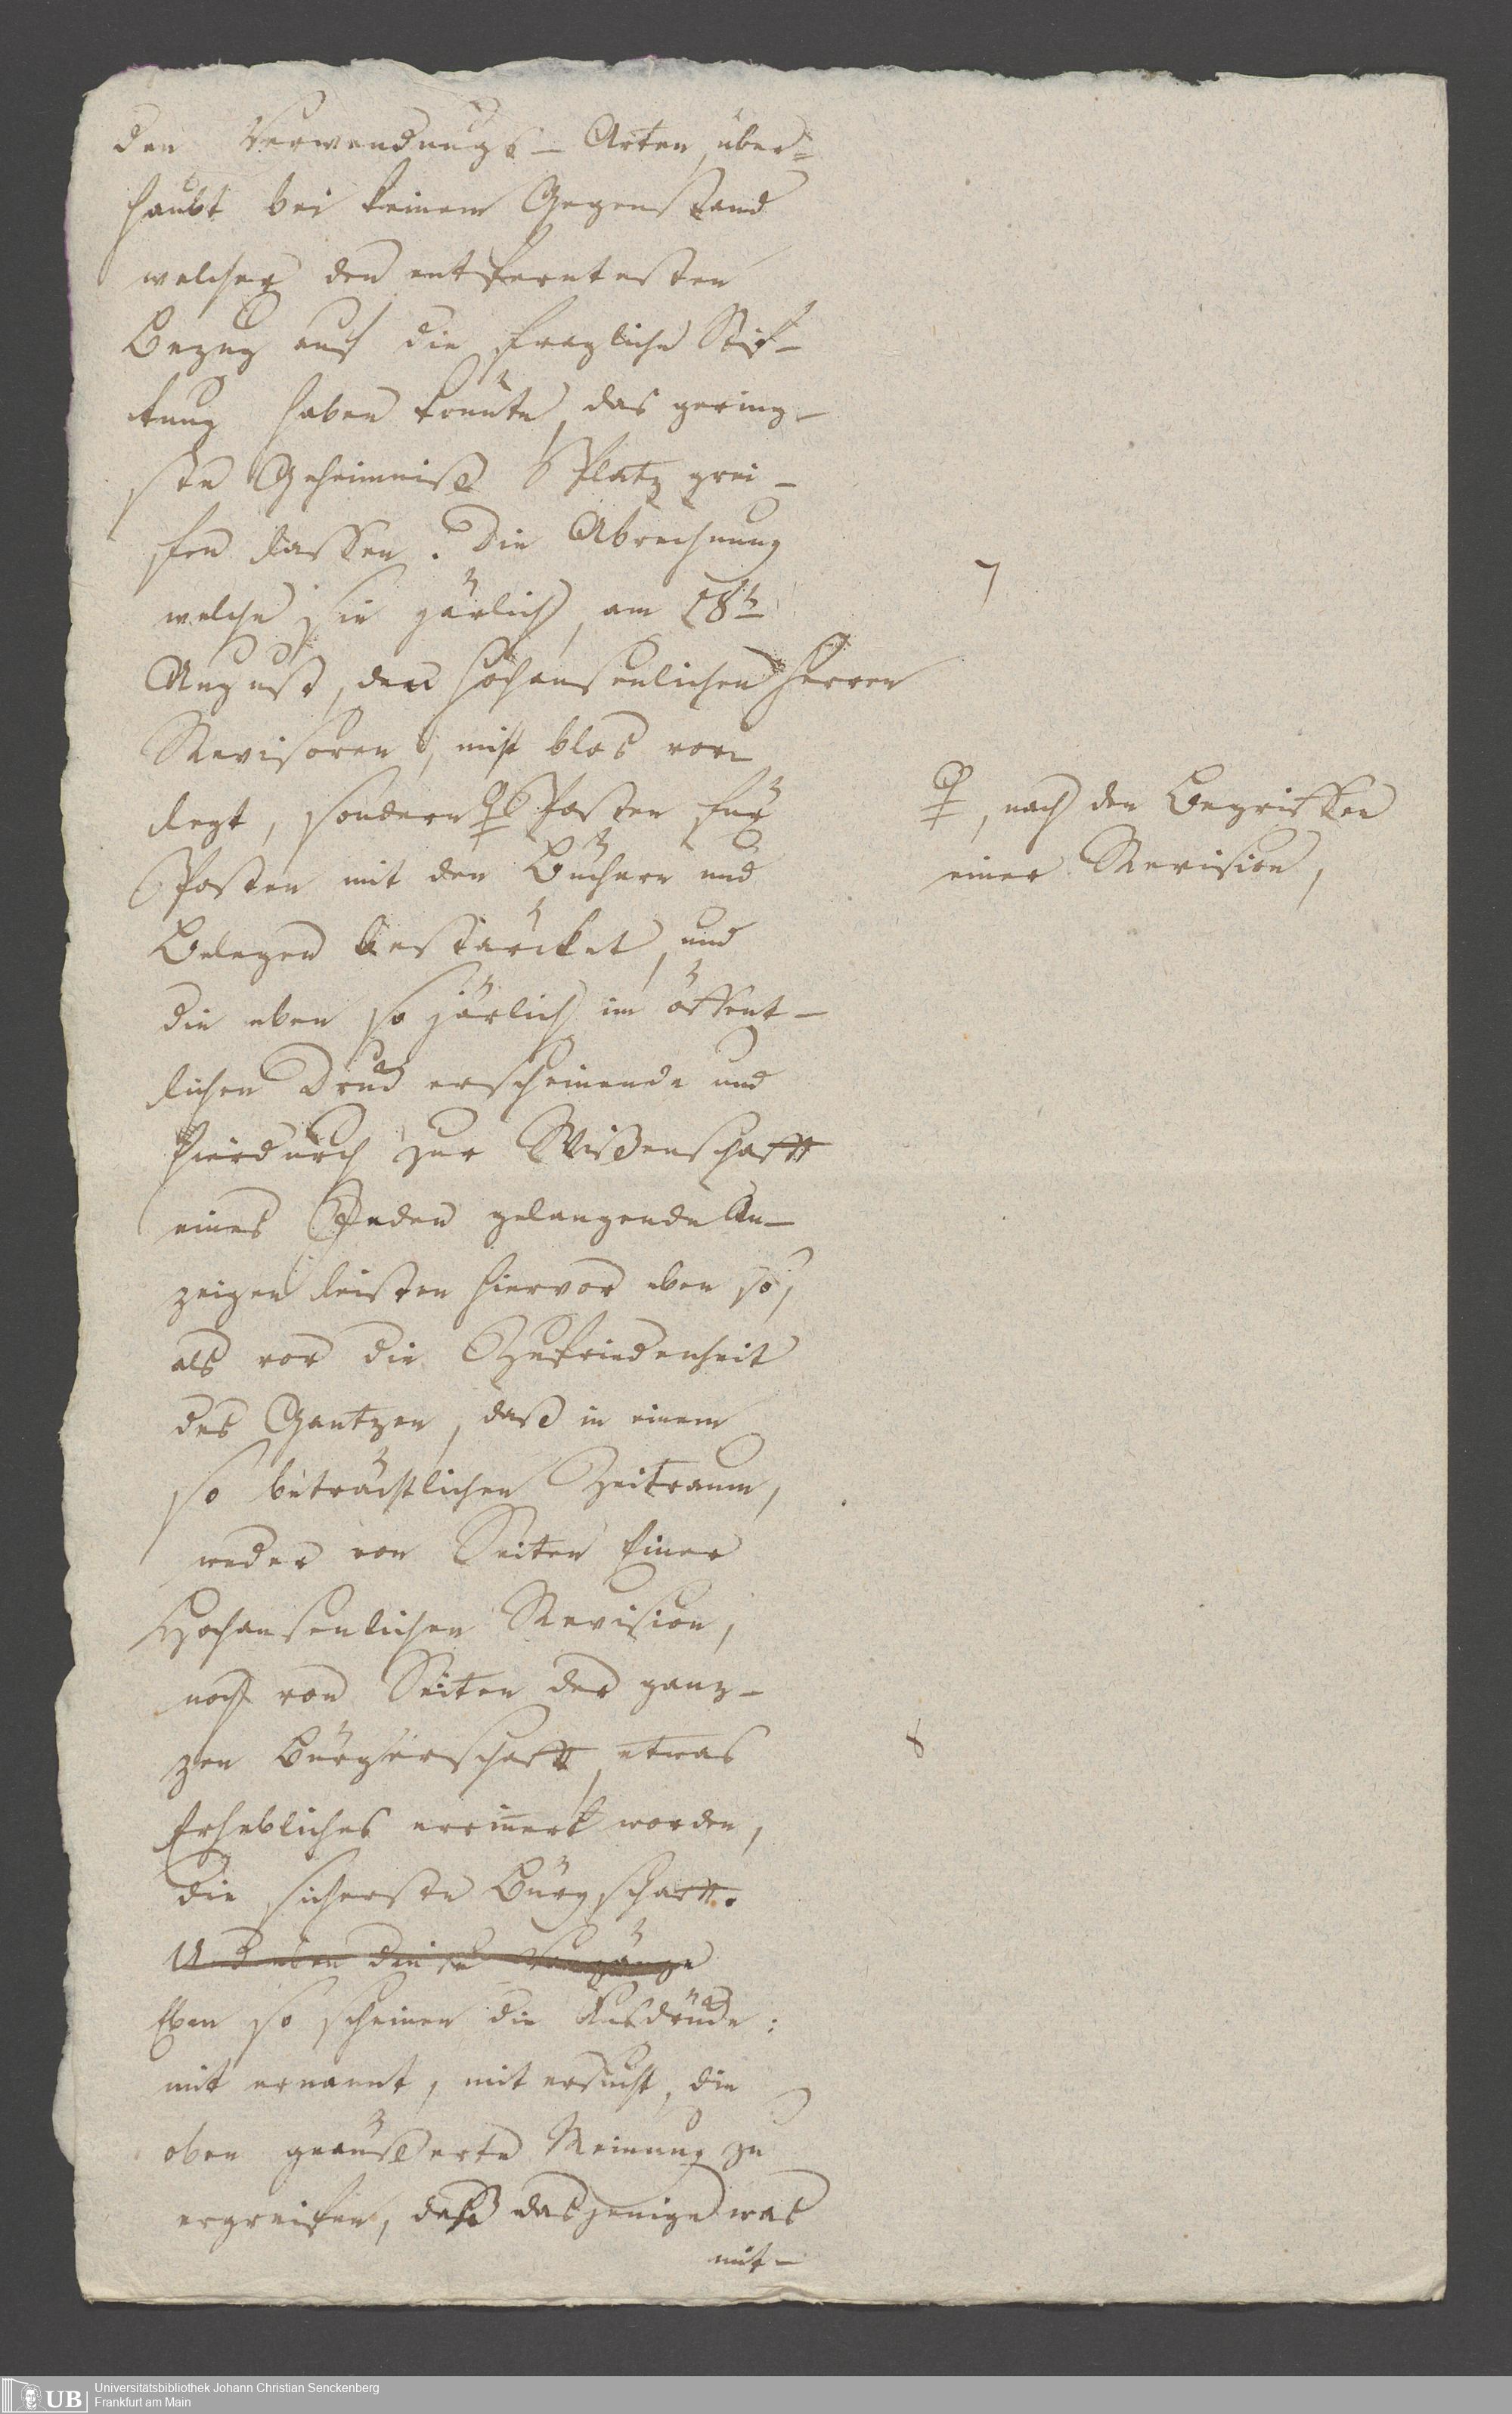 den Verwendungs-Arten, über=
haubt bei keinem Gegenstand
welcher den entferntesten
Bezug auf die fragliche Stif-
tung haben könnte, das gering-
ste Geheimniß Platz grei-
fen lassen. Die Abrechnung
7
welche sie järlich, am 18ts
August, den hochansenlichen Herren
Revisoren, nicht blos vor
legt, sondern ♀ Posten für
♀, nach den Begriffen
Posten mit den Büchern und
einer Revision,
Belegen bestärcket, und
die eben so järlich im öffent-
lichen Druck erscheinende und
hierdurch zur Wißenschafft
eines Jeden gelangende An-
zeigen leisten hiervor eben so,
als vor die Zufriedenheit
des Gantzen, daß in einem
so beträchtlichen Zeitraum,
weder von Seiten Einer
Hochansenlichen Revision,
noch von Seiten der ganz-
zen Bürgerschafft, etwas
8
Erhebliches erinnert worden,
die sicherste Bürgschafft.
Und eben diese
Eben so scheinen die Ausdrücke:
mit ernannt, mit ersucht, die
oben geäußerte Meinung zu
ergreifen, daß dasjenige was
mit-
UB Universitätsbibliothek Johann Christian Senckenberg
Frankfurt am Main